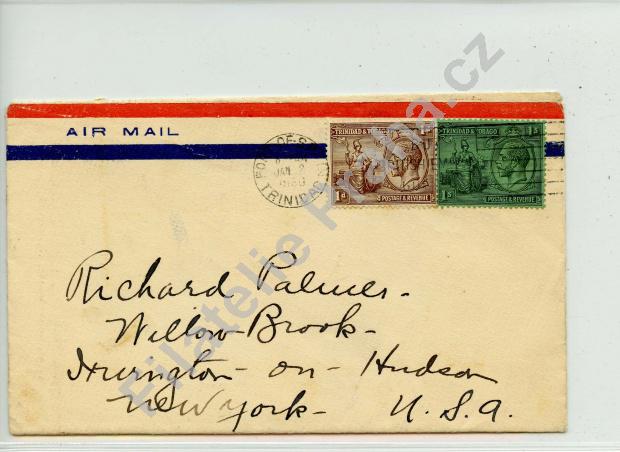 AIR MAIL
PORT-OF-SPAIN
JAN 2
1930
TRINIDAD
TRINIDAD & TOBAGO 1d
1d POSTAGE & REVENUE
TRINIDAD & TOBAGO 1s
1s POSTAGE & REVENUE
Richard Palmer-
Willow-Brook-
Irvington-on-Hudson
New York- U.S.A.
Filatelie Praha.cz